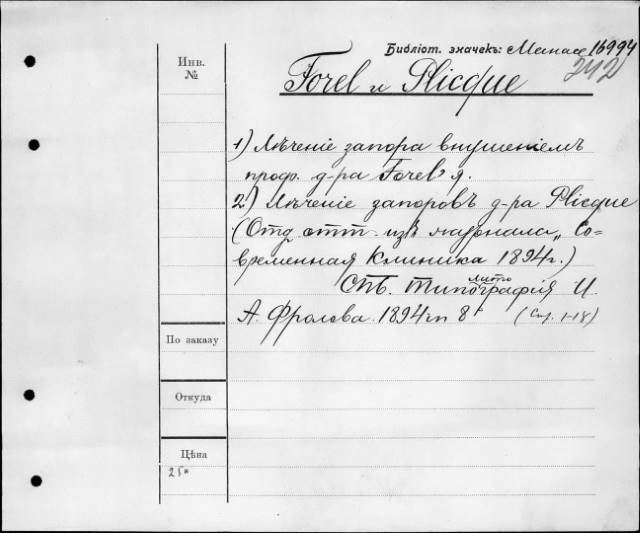 Библіот. значекъ: Манасе 16994
242
Инв.
№
Forel и Plicque
1) Лѣченіе запора внушеніемъ
проф. д-ра Forel'я.
2) Лѣченіе запоровъ д-ра Plicque
(Отд. отт. изъ журнала „Со-
временная Клиника 1894г.)
СПб. Типо лито графія И.
А. Фролова. 1894г. 8° (Стр. 1-18)
По заказу
Откуда
Цѣна
25к